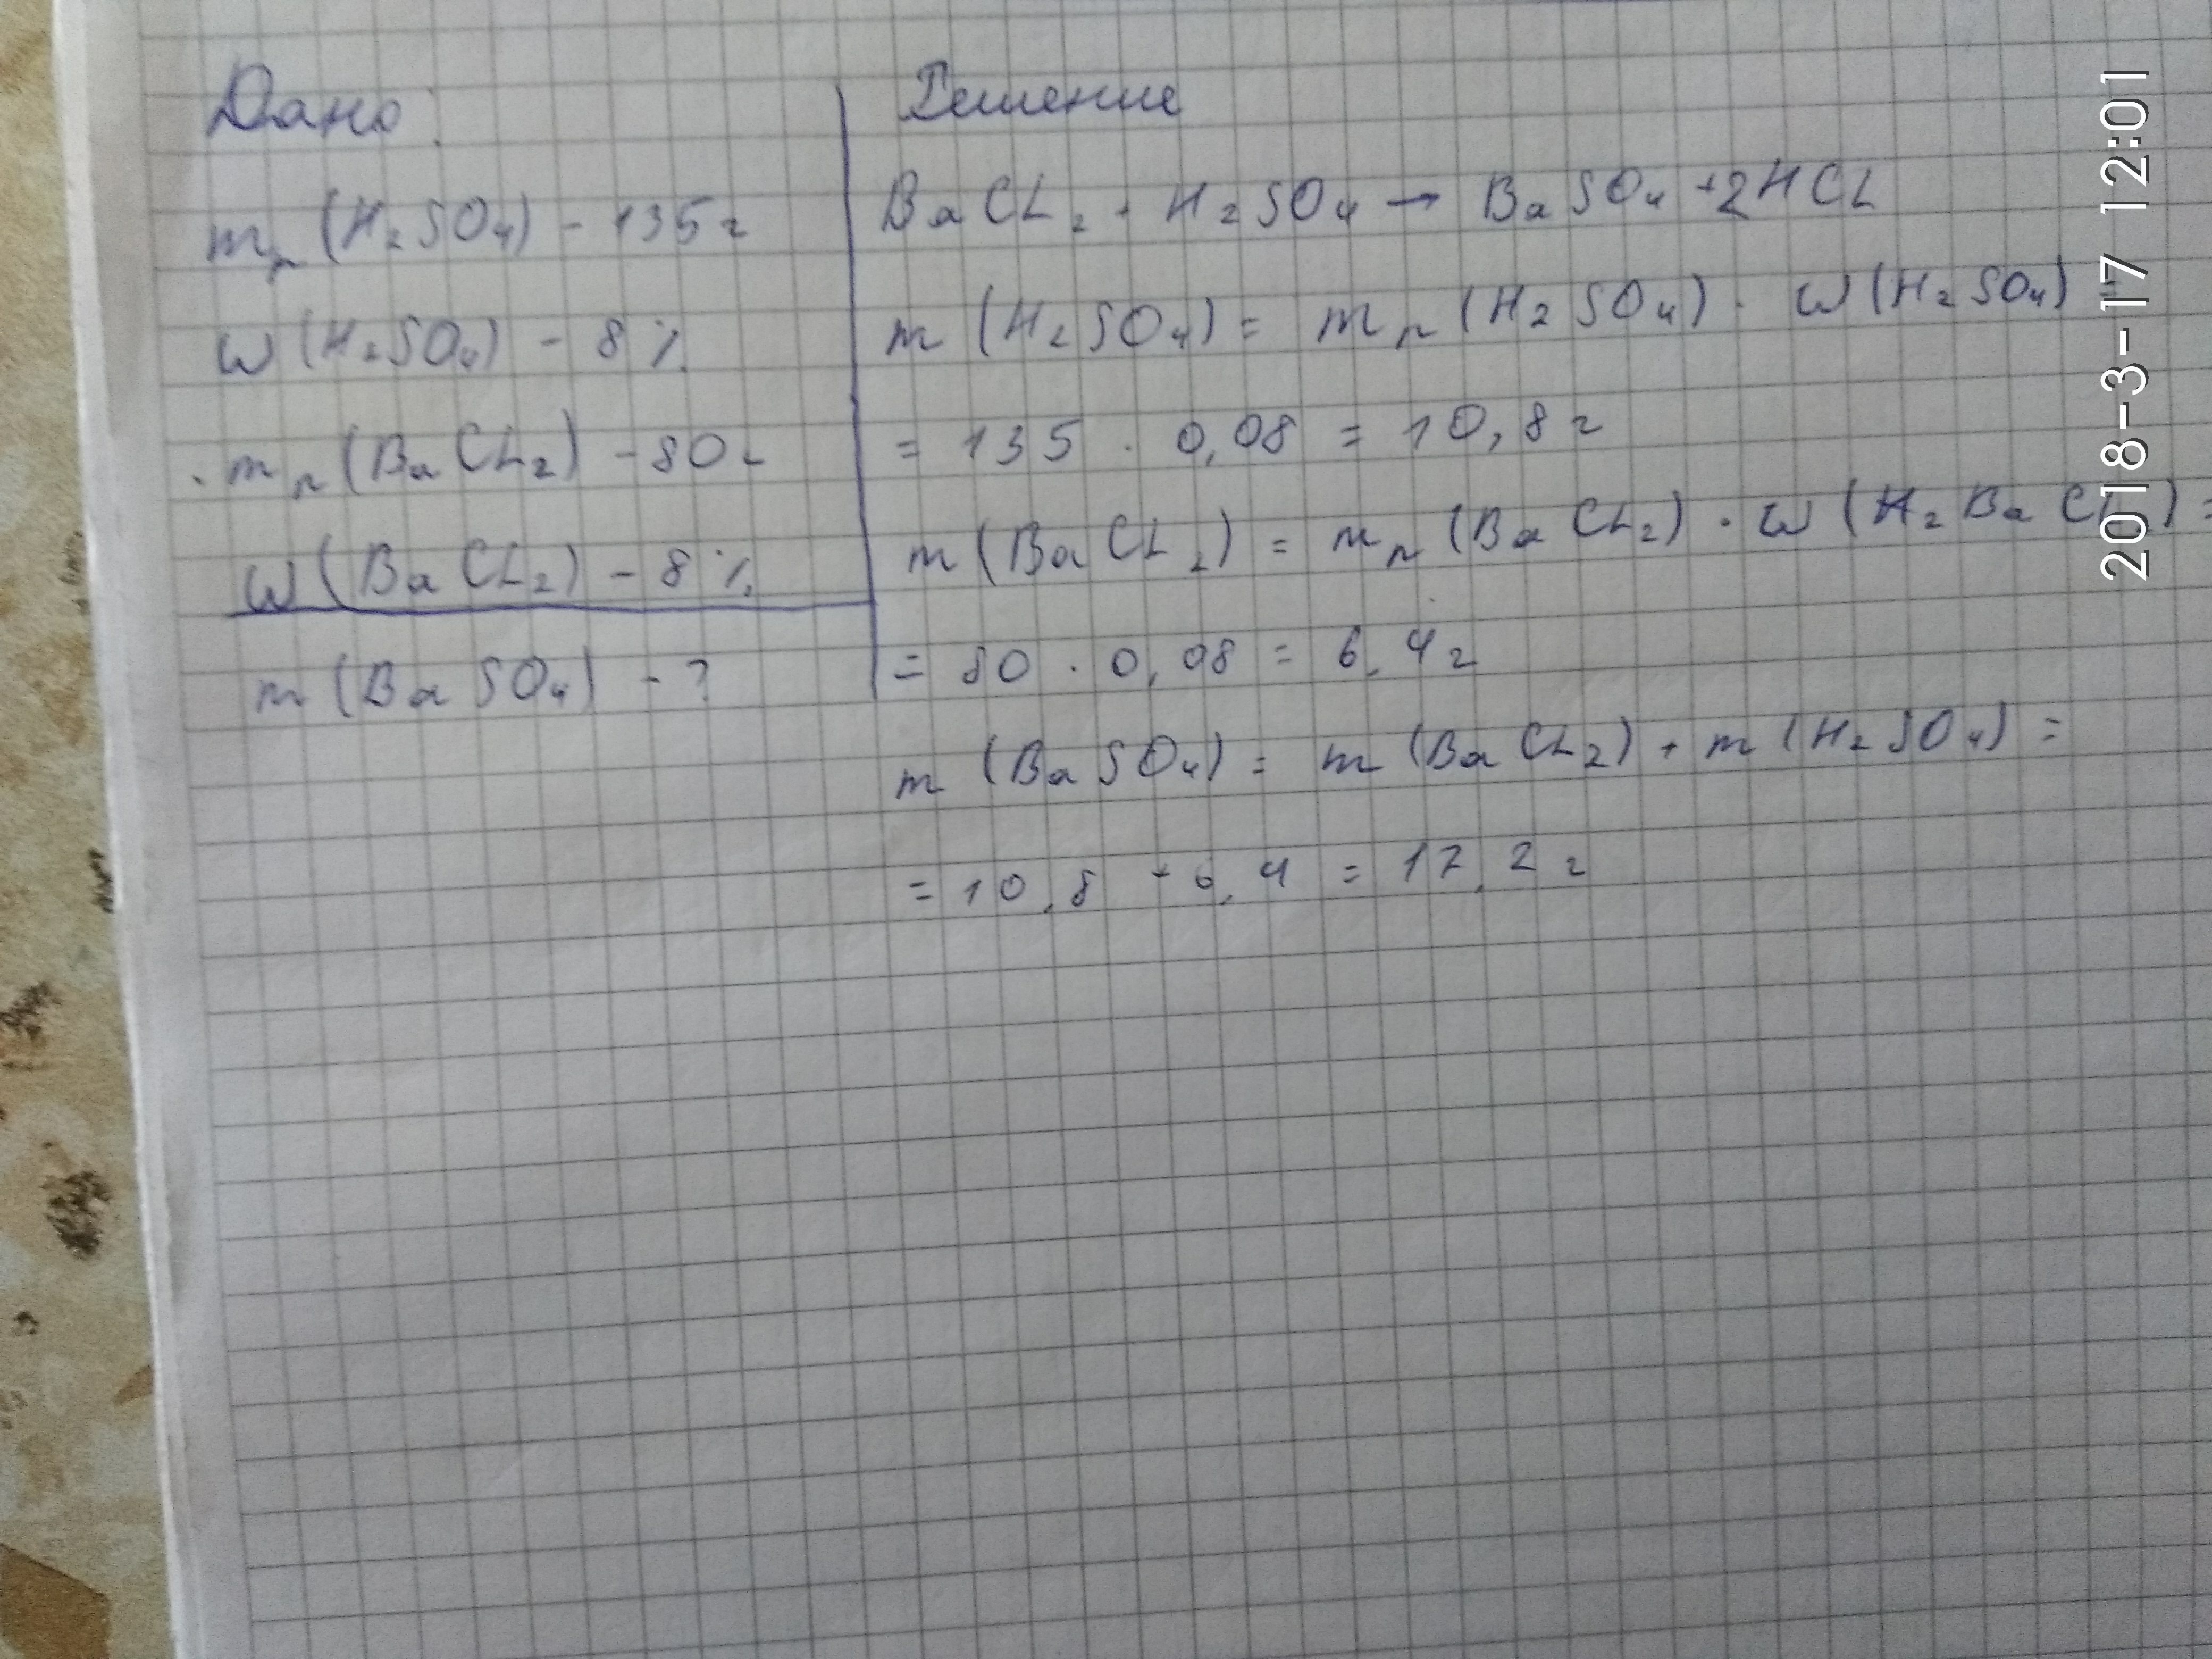 Дано:
mр(H2SO4) - 135г
w(H2SO4) - 8%
mр(BaCL2) - 80г
w(BaCL2) - 8%
m(BaSO4) - ?
Решение
BaCL2 + H2SO4 → BaSO4 + 2HCL
m(H2SO4) = mр(H2SO4) · w(H2SO4) =
= 135 · 0,08 = 10,8г
m(BaCL2) = mр(BaCL2) · w(H2BaCL2) =
= 80 · 0,08 = 6,4г
m(BaSO4) = m(BaCL2) + m(H2SO4) =
= 10,8 + 6,4 = 17,2г
2018-3-17 12:01